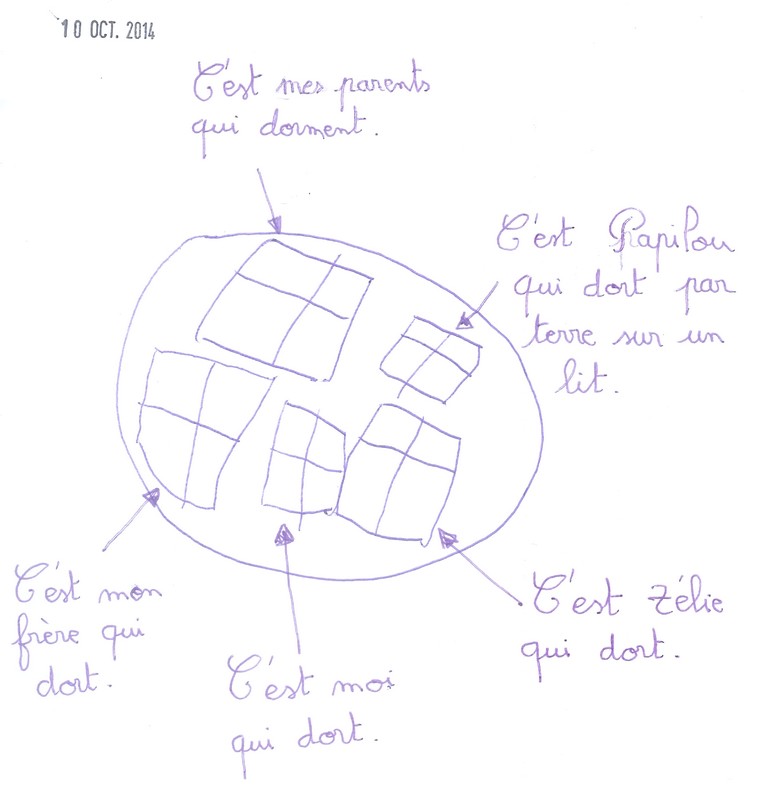 10 OCT. 2014
C'est mes parents
qui dorment.
C'est Papilou
qui dort par
terre sur un
lit.
C'est mon
frère qui
dort.
C'est moi
qui dort.
C'est Zélie
qui dort.